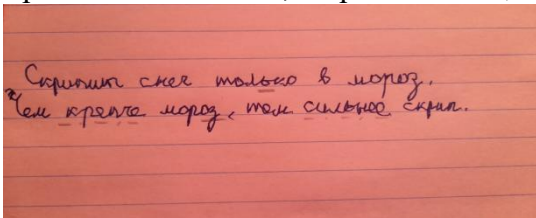 Скрипит снег только в мороз.
Чем крепче мороз, тем сильнее скрип.